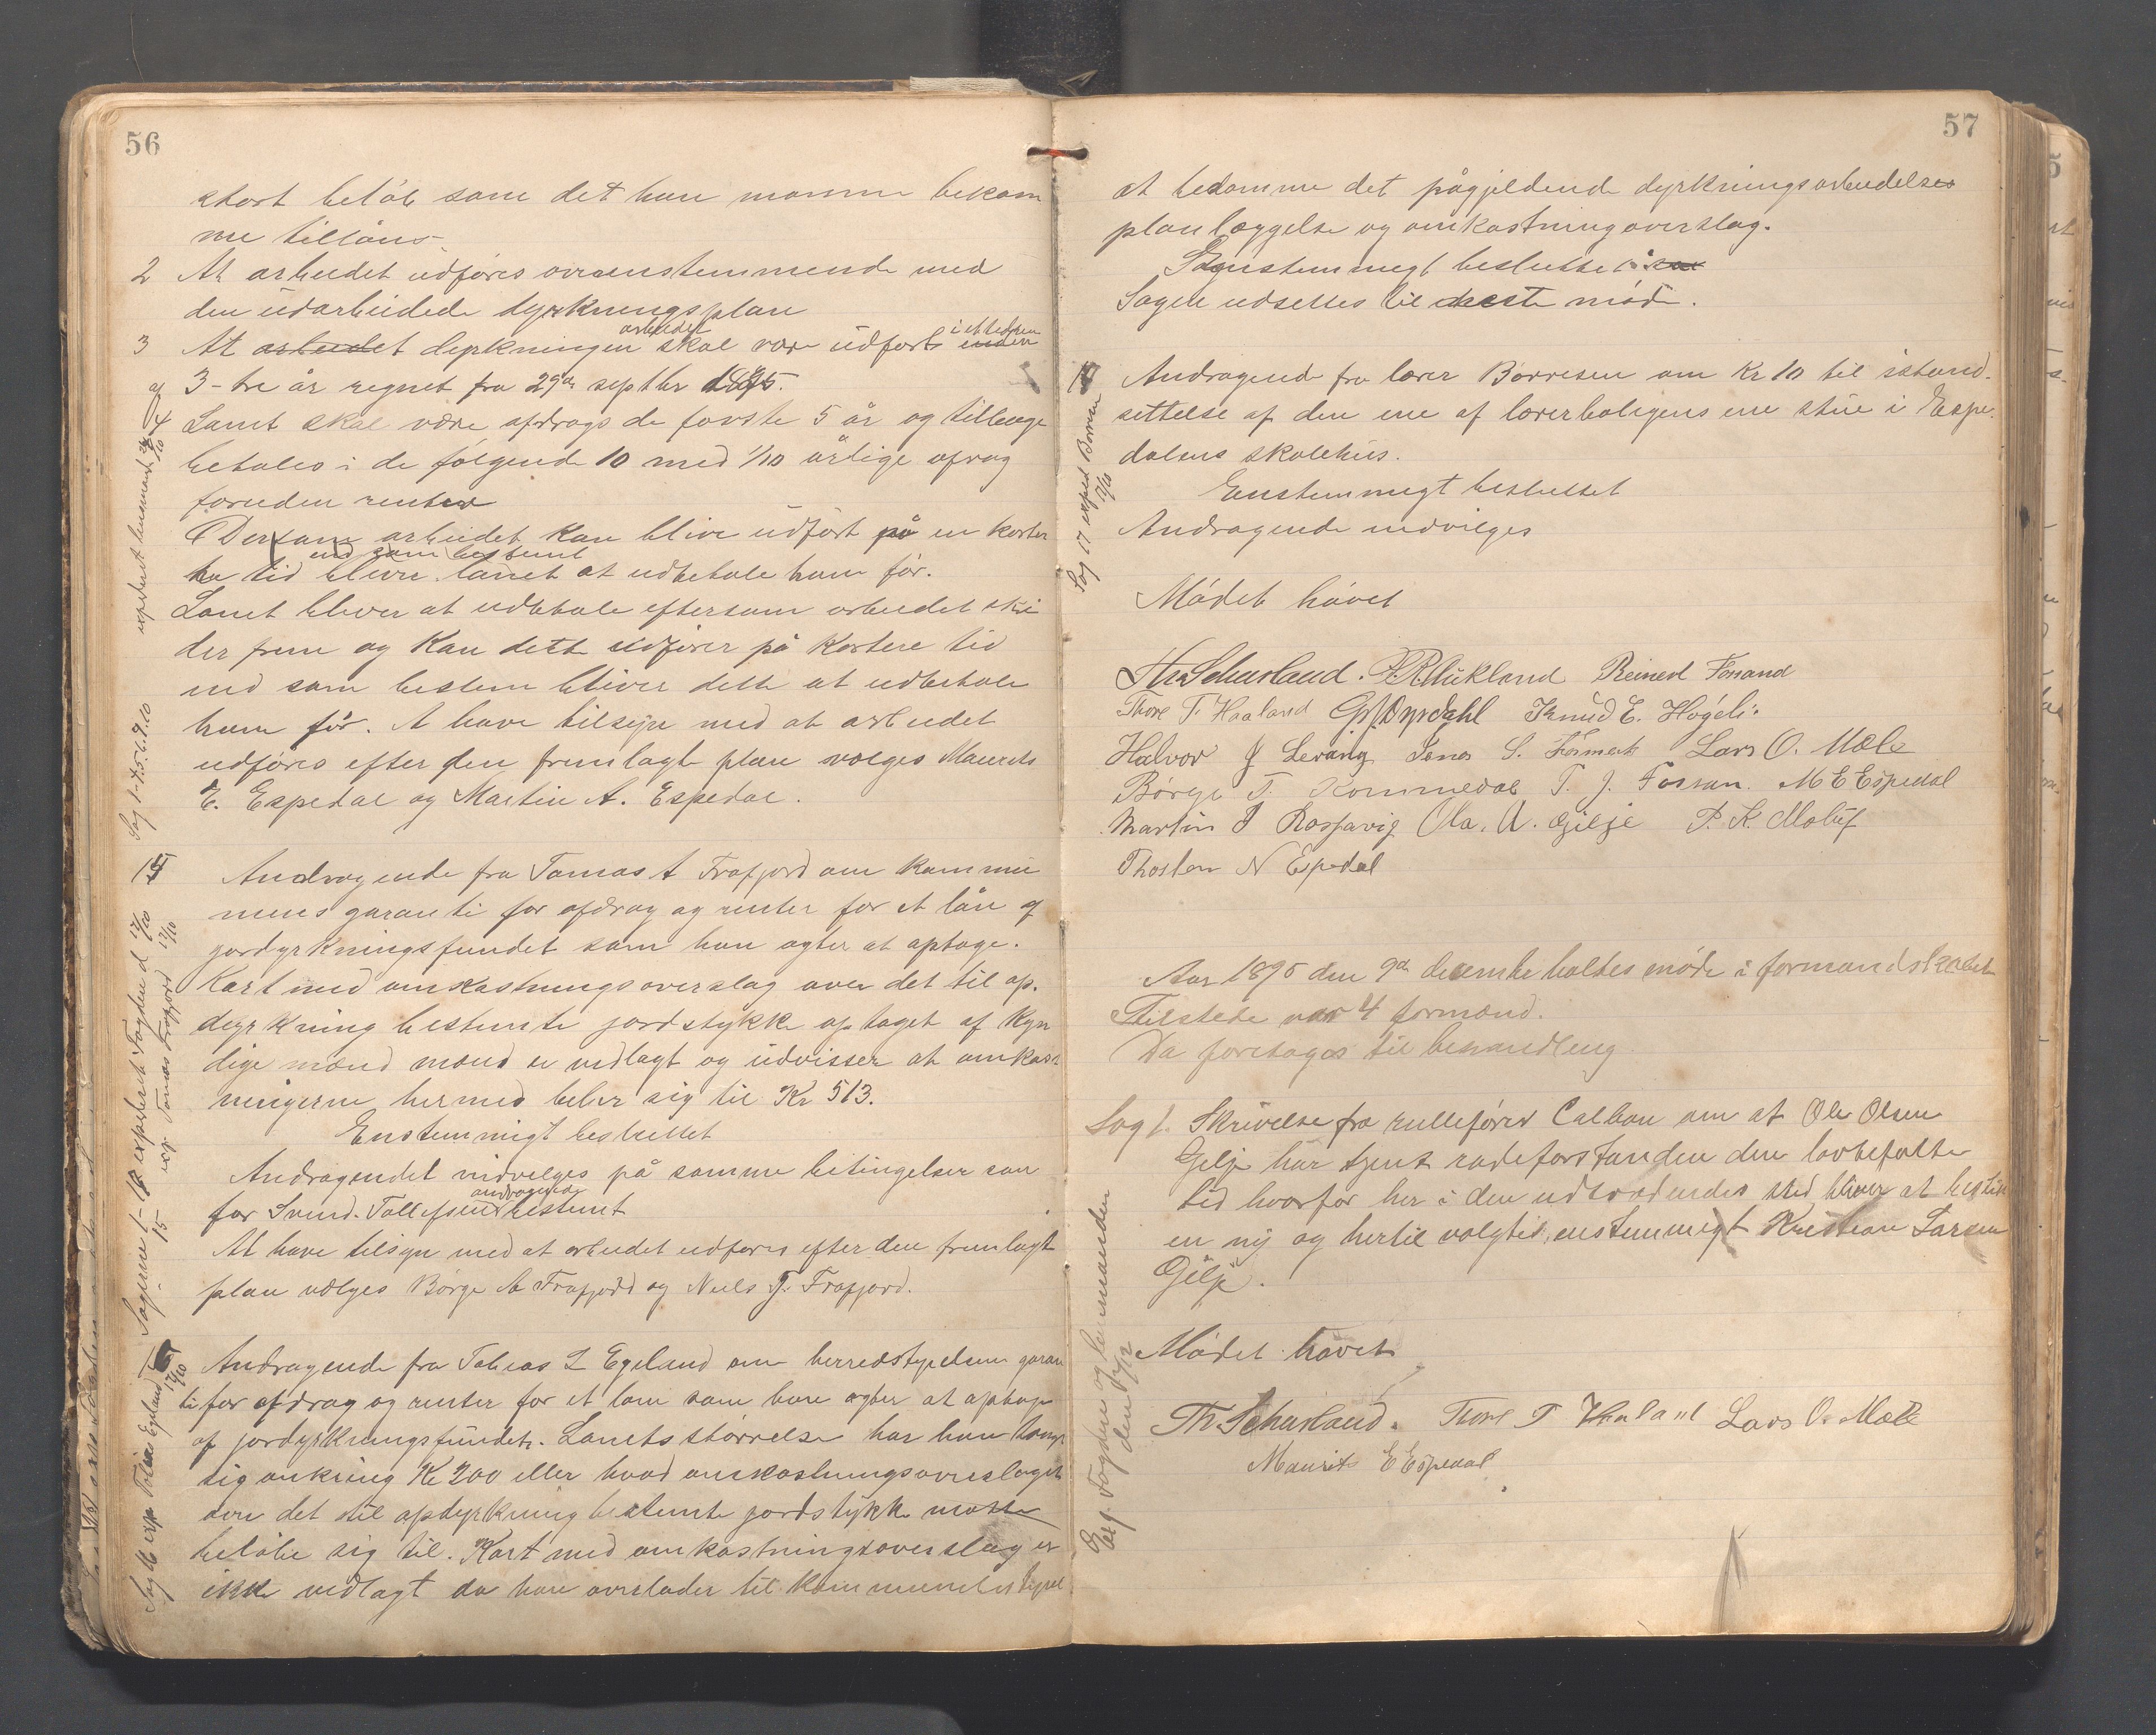 56
stort beløb som det han monne bekom
me tillåns
2 At arbeidet udføres overenstemmende med
den udarbeidede dyrkningsplan
3 At arbeidet dyrkningen arbeidet skal være udført inden i et tidsrum
3 - tre år regnet fra 29de septbr 1895.
og 4 Lånet skal være afdrags de første 5 år og tilbage
betales i de følgende 10 med 1/10 årlige afrag
foruden renter
Dersom arbeidet kan blive udført på en korter
re tid end som bestemt blive lånet at udbetale ham før.
Lånet bliver at udbetale eftersom arbeidet skri
der frem og kan dett udfører på kortere tid
end som bestem bliver dette at udbetale
ham før. At have tilsyn med at arbeidet
udføres efter den fremlagte plan vælges Maurits
E. Espedal og Martin A. Espedal.
14 Andragende fra Tomas A Frafjord om kommu
nens garanti for afdrag og renter for et lån af
jordyrkningsfundet som han agter at optage.
Kart med omkostningsoverslag over det til op.
dyrkning bestemte jordstykke optaget af kyn
dige mænd mænd er vedlagt og udvisser at omkost
ningerne hermed beløber sig til Kr 513.
Enstemmigt besluttet
Andragendet indvilges på samme betingelser som
for Svend. Tollefsens andragende bestemt
At have tilsyn med at arbeidet udføres efter den fremlagte
plan vælges Børge A Frafjord og Niels T. Frafjord.
16 Andragende fra Tobias L Egeland om herredstyrelsens garan
ti for afdrag og renter for et lån som han agter at optage
af jordyrkningsfundet. Lånets størrelse har han tænkt
sig omkring Kr 200 eller hvad omkostningsoverslaget
over det til opdyrkning bestemte jordstykke måtte
beløbe sig til. Kart med omkostningsoverslag er
ikke vedlagt da han overlader til kommunestyrel
expederet lensmand 24/10
Sag 1-4.5.6.9.10
Sagerne 1-18 expederet Fogden d 17/10
15 exp Tomas Frafjord 17/10
Sag 16 exp Tobias Egeland 17/10
57
at bedømme det pågjeldende dyrkningsarbeidelses
planlæggelse og omkostningoverslag.
Enstemmigt besluttet
Sagen udsettes til neste møde.
17 Andragende fra lærer Børresen om Kr 10 til istand-
settelse af den ene af lærerboligens ene stue i Espe-
dalens skolehus.
Enstemmigt besluttet
Andragende indvilges
Sag 17 exped Børresen 17/10
Mødet hævet
Th. Schurland. P. R. Aukland Reinert Fossand
Thore T. Haaland G. J. Dyrdahl Knud E. Høgeli.
Halvor J Levang Jens S. Tormek Lars O. Mæle
Børge T. Kommedal T. J. Fossan. M E Espedal
Martin J Rossavig Ola. A. Gilje P. K. Maluf
Thosten N Espedal
Aar 1895 den 9de decembe holtes møde i formandskabet
Tilstede var 4 formænd.
Da foretages til behandling
Sag 1. Skrivelse fra rullefører Calban om at Ole Olsen
Gilje har tjent rodeforstanden den lovbefalte
tid hvorfor her i den udtrædendes sted bliver at bestem
en ny og hertil valgtes enstemmigt Kristian Larsen
Gilje.
Exp. Fogden og lensmanden den 14/12
Mødet hævet
Th. Schurland. Thore T Haaland Lars O. Mæle
Maurits E Espedal